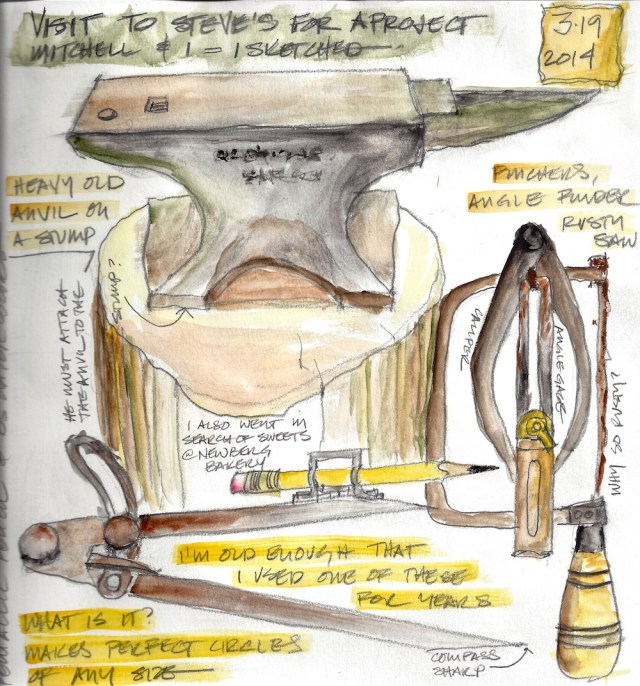 VISIT TO STEVE'S FOR A PROJECT
MITCHELL & I - I SKETCHED
3.19
2014
HEAVY OLD
ANVIL ON
A STUMP
PINCHERS,
ANGLE FINDER
RUSTY
SAW
STUMP?
HE MUST ATTACH
THE ANVIL TO THE
CALIPER
ANGLE GAGE
WHY SO RUSTY?
I ALSO WENT IN
SEARCH OF SWEETS
@ NEWBERG
BAKERY
I'M OLD ENOUGH THAT
I USED ONE OF THESE
FOR YEARS
WHAT IS IT?
MAKES PERFECT CIRCLES
OF ANY SIZE
COMPASS
SHARP